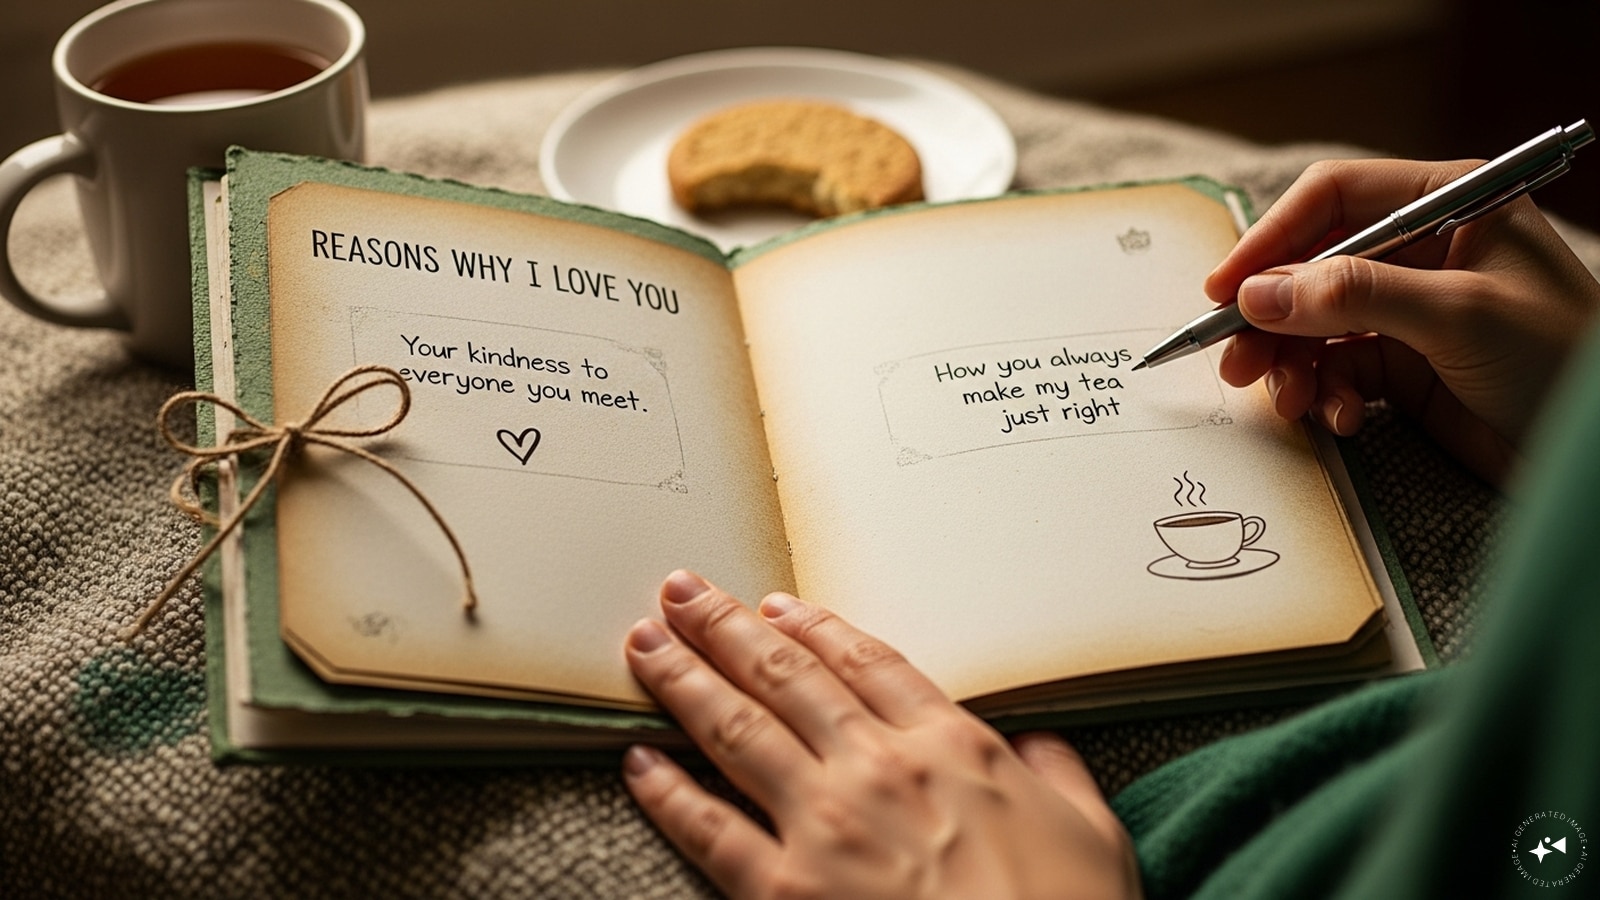 REASONS WHY I LOVE YOU
Your kindness to
everyone you meet.
How you always
make my tea
just right
AI GENERATED IMAGE • AI GENERATED IMAGE •